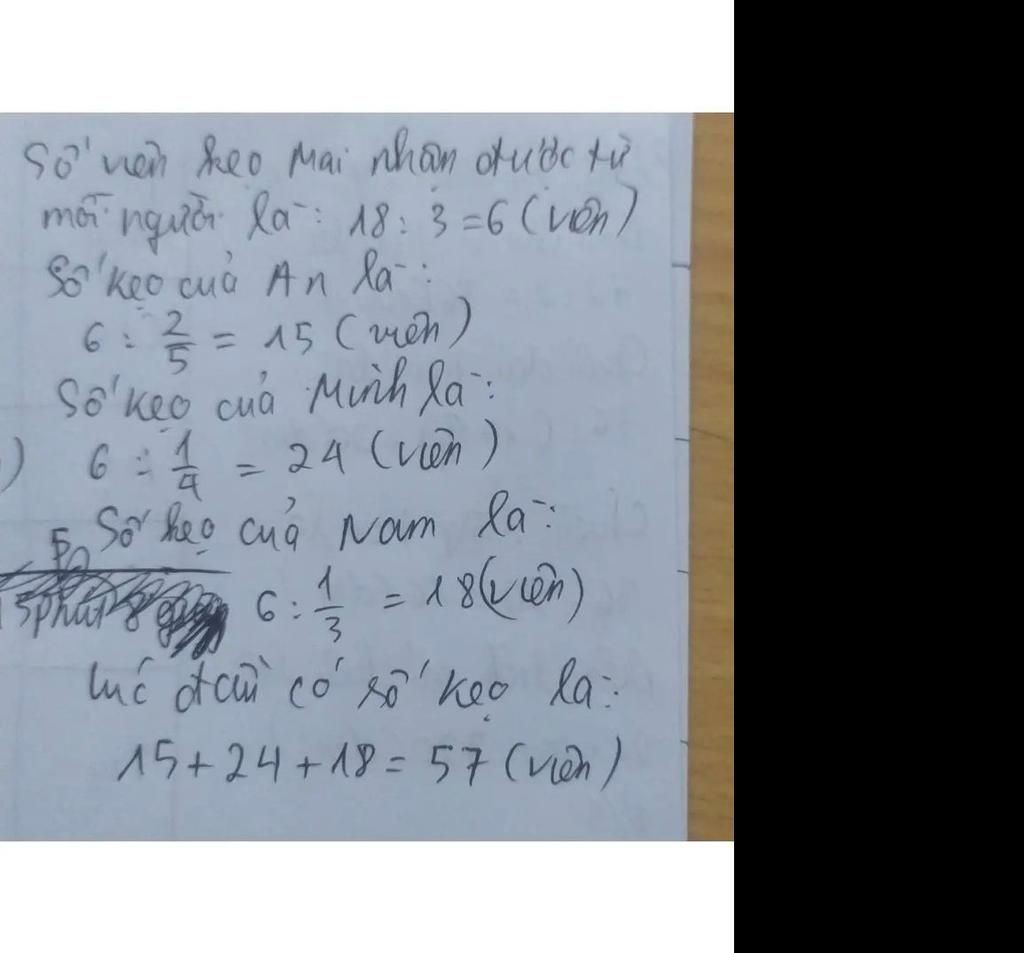 Số viên kẹo Mai nhận được từ
mỗi người là: 18 : 3 = 6 (viên)
Số kẹo của An là:
6 : 2/5 = 15 (viên)
Số kẹo của Minh là:
) 6 : 1/4 = 24 (viên)
Số kẹo của Nam là:
6 : 1/3 = 18 (viên)
lúc đầu có số kẹo là:
15 + 24 + 18 = 57 (viên)